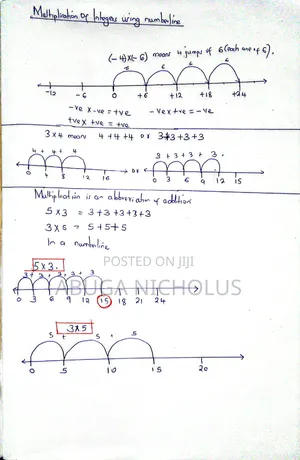 Multiplication Of Integers using numberline
(-4)x(-6) means 4 jumps of 6 (each one of 6).
6 6 6
-12 -6 0 +6 +12 +18 +24
-ve x -ve = +ve -ve x +ve = -ve
+ve x +ve = +ve
3 x 4 means 4 + 4 + 4 or 3+3+3+3
4 + 4 + 4 3 + 3 + 3 + 3
0 4 8 12 16 or 0 3 6 9 12 15
Multiplication is an abbreviation of addition
5 x 3 = 3+3+3+3+3
3 x 5 = 5+5+5
In a numberline
5 x 3.
3 + 3 + 3 + 3 + 3
0 3 6 9 12 15 18 21 24
POSTED ON JIJI
ABUGA NICHOLUS
3 x 5
5 + 5 + 5
0 5 10 15 20